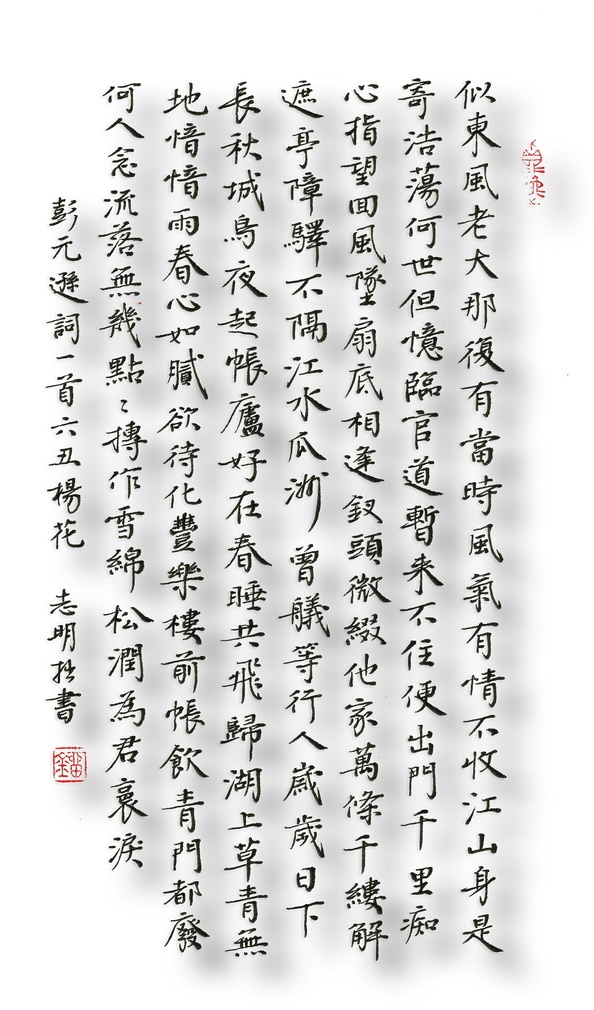 似東風老大那復有當時風氣有情不收江山身是
寄浩蕩何世但憶臨官道暫来不住便出門千里痴
心指望囬風墜扇底相逢釵頭微綴他家萬條千縷解
遮亭障驛不隔江水瓜洲曾艤等行人歲歲日下
長秋城鳥夜起帳廬好在春睡共飛歸湖上草青無
地愔愔雨春心如膩欲待化豐樂樓前帳飲青門都廢
何人念流落無幾點〻摶作雪綿松潤為君裛淚
彭元遜詞一首六丑楊花 志明拙書